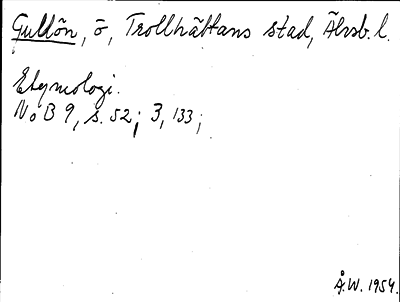 Gullön, ö, Trollhättans stad, Älvsb. l.
Etymologi.
NoB 9, s. 52; 3, 133;
Å.W. 1954.